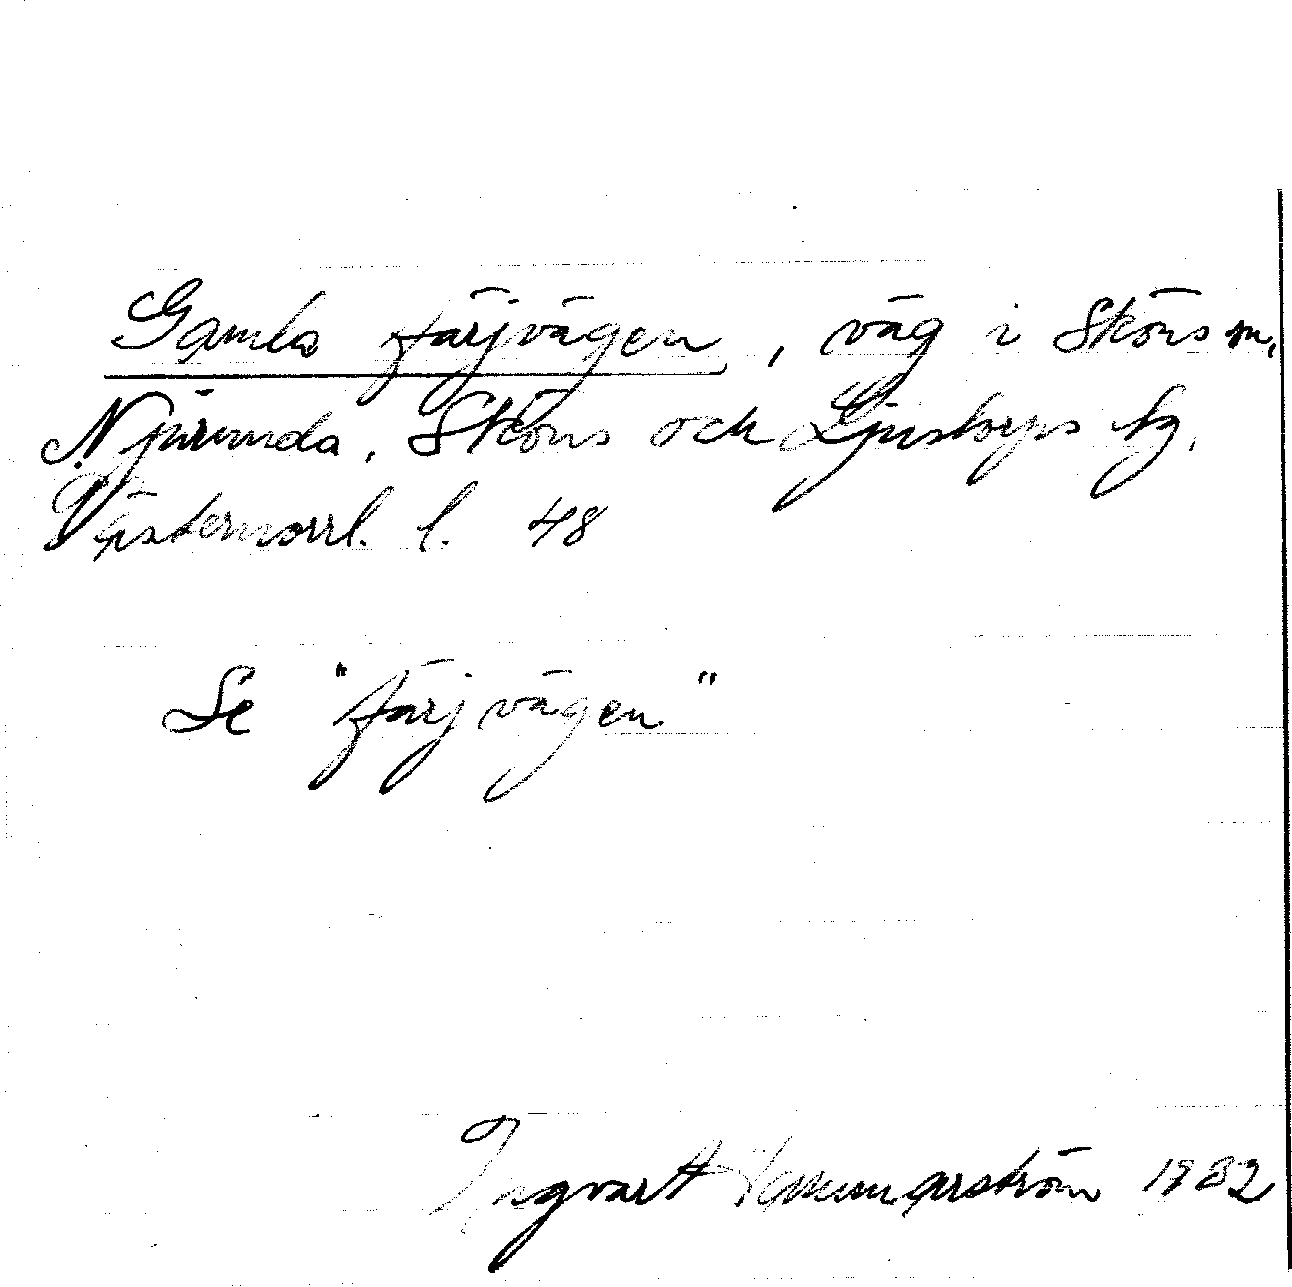 Gamla färjvägen, väg i Sköns sn,
Njurunda, Sköns och Ljustorps tg,
Västernorrl. l. 48
Se "färjvägen"
Ingvart Hammarström 1932